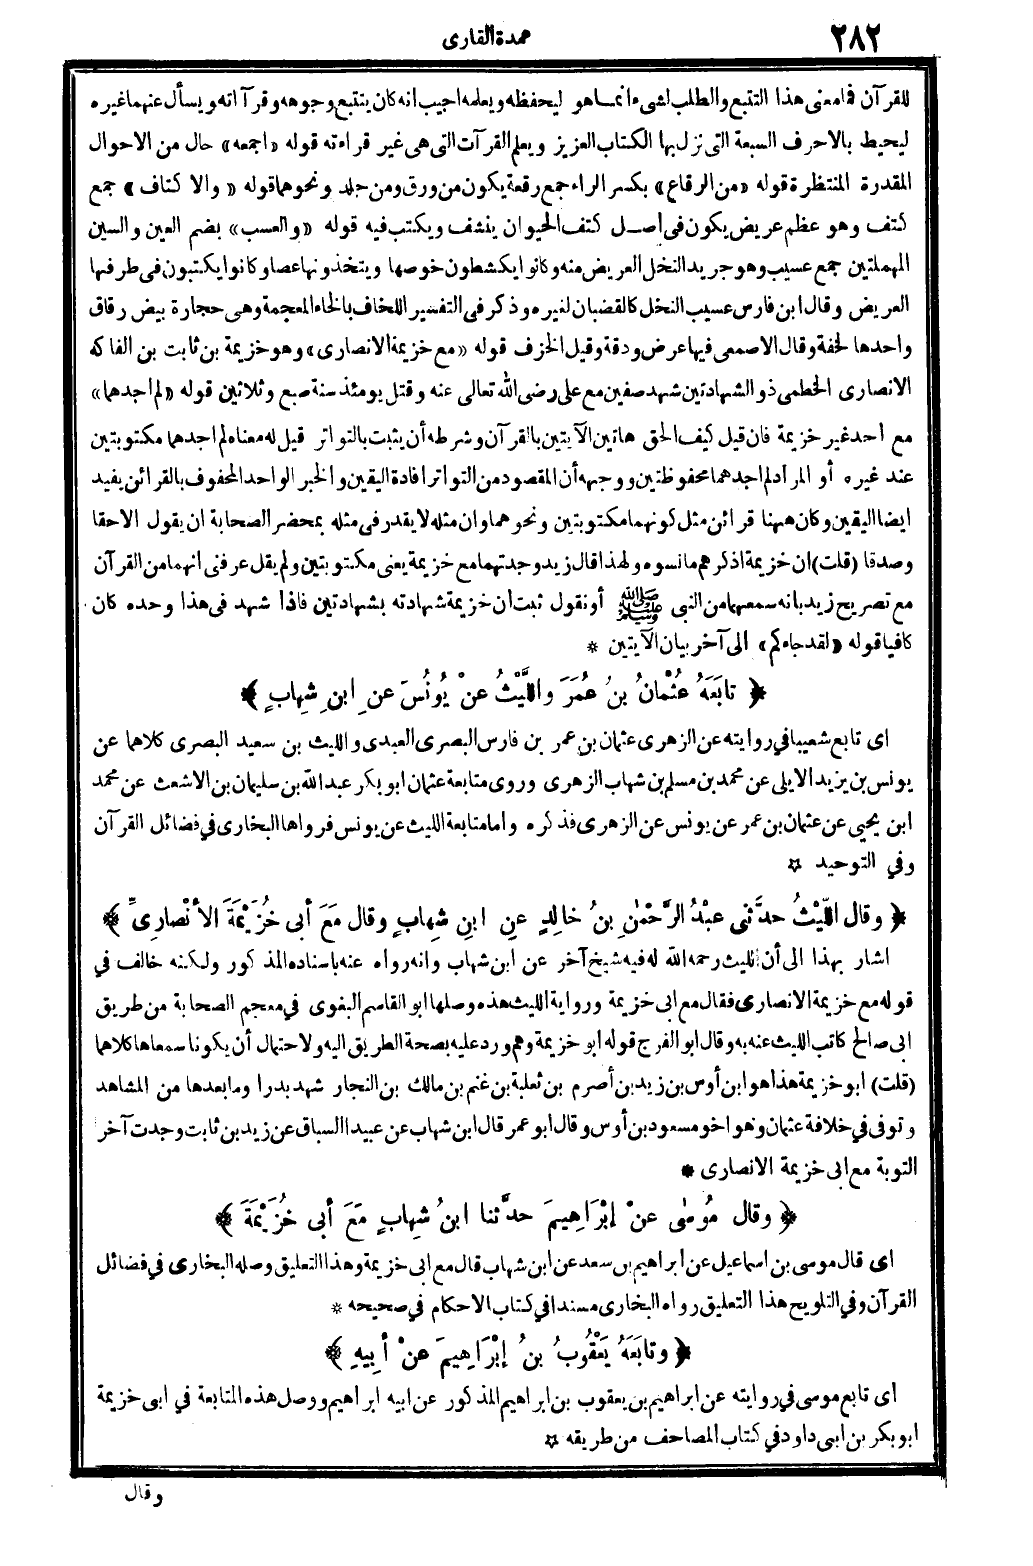 ٢٨٢
عمدة القارى
للقرآن فامعنى هذا التتبع والطلب لشىء انما هو ليحفظه ويعلمه اجيب انه كان يتتبع وجوهه وقرآاته ويسأل عنهما غيره
ليحيط بالاحرف السبعة التى نزل بها الكتاب العزيز ويعلم القرآت التى هى غير قراءته قوله «اجمعه» حال من الاحوال
المقدرة المنتظرة قوله «من الرقاع» بكسر الراء جمع رقعة يكون من ورق ومن جلد ونحوهما قوله «والاكتاف» جمع
كتف وهو عظم عريض يكون فى اصل كتف الحيوان ينشف ويكتب فيه قوله «والعسب» بضم العين والسين
المهملتين جمع عسيب وهو جريد النخل العريض منه وكانوا يكشطون خوصها ويتخذونها عصا وكانوا يكتبون فى طرفها
العريض وقال ابن فارس عسيب النخل كالقضبان لغيره وذكر فى التفسير اللخاف بالخاء المعجمة وهى حجارة بيض رقاق
واحدها لخفة وقال الاصمعى فيها عرض ودقة وقيل الخزف قوله «مع خزيمة الانصارى» وهو خزيمة بن ثابت بن الفاكه
الانصارى الخطمى ذو الشهادتين شهد صفين مع على رضى الله تعالى عنه وقتل يومئذ سنة سبع وثلاثين قوله «لم اجدهما»
مع احد غير خزيمة فان قيل كيف الحق هاتين الآيتين بالقرآن وشرطه أن يثبت بالتواتر قيل له معناه لم اجدهما مكتوبتين
عند غيره أو المراد لم اجدهما محفوظتين ووجهه أن المقصود من التواتر افادة اليقين والخبر الواحد المحفوف بالقرائن يفيد
ايضا اليقين وكان ههنا قرائن مثل كونهما مكتوبتين ونحوهما وان مثله لا يقدر فى مثله بمحضر الصحابة ان يقول الاحقا
وصدقا (قلت) ان خزيمة اذكرهم ما نسوه ولهذا قال زيد وجدتهما مع خزيمة يعنى مكتوبتين ولم يقل عرفنى انهما من القرآن
مع تصريح زيد بانه سمعهما من النبى ﷺ أو نقول ثبت أن خزيمة شهادته بشهادتين فاذا شهد فى هذا وحده كان
كافيا قوله «لقد جاءكم» الى آخر بيان الآيتين *
﴿ تابَعَهُ عُثْمانُ بنُ عُمَرَ واللَّيْثُ عنْ يُونُسَ عنِ ابنِ شِهابٍ ﴾
اى تابع شعيبا في روايته عن الزهرى عثمان بن عمر بن فارس البصرى العبدى والليث بن سعيد البصرى كلاهما عن
يونس بن يزيد الايلى عن محمد بن مسلم بن شهاب الزهرى وروى متابعة عثمان ابو بكر عبدالله بن سليمان بن الاشعث عن محمد
ابن يحيى عن عثمان بن عمر عن يونس عن الزهرى فذكره واما متابعة الليث عن يونس فرواها البخارى في فضائل القرآن
وفي التوحيد *
﴿ وقال اللَّيْثُ حدَّثنى عبْدُ الرَّحْمٰنِ بنُ خالِدٍ عنِ ابنِ شِهابٍ وقال مَعَ أبى خُزَيْمَةَ الأنْصارِىِّ ﴾
اشار بهذا الى أن الليث رحمه الله له فيه شيخ آخر عن ابن شهاب وانه رواه عنه باسناده المذكور ولكنه خالف في
قوله مع خزيمة الانصارى فقال مع ابى خزيمة ورواية الليث هذه وصلها ابو القاسم البغوى في معجم الصحابة من طريق
ابى صالح كاتب الليث عنه به وقال ابو الفرج قوله ابو خزيمة وهم ورد عليه بصحة الطريق اليه ولاحتمال أن يكونا سمعاها كلاهما
(قلت) ابو خزيمة هذا هو ابن أوس بن زيد بن أصرم بن ثعلبة بن غنم بن مالك بن النجار شهد بدرا وما بعدها من المشاهد
وتوفى في خلافة عثمان وهو اخو مسعود بن أوس وقال ابو عمر قال ابن شهاب عن عبيدا السباق عن زيد بن ثابت وجدت آخر
التوبة مع ابى خزيمة الانصارى *
﴿ وقال مُوسٰى عنْ إبْرَاهِيمَ حدَّثنا ابنُ شِهابٍ مَعَ أبى خُزَيْمَةَ ﴾
اى قال موسى بن اسماعيل عن ابراهيم بن سعد عن ابن شهاب قال مع ابى خزيمة وهذا التعليق وصله البخارى في فضائل
القرآن وفي التلويح هذا التعليق رواه البخارى مسندا في كتاب الاحكام في صحيحه *
﴿ وتابَعَهُ يَعْقُوبُ بنُ إبْرَاهِيمَ عنْ أبِيهِ ﴾
اى تابع موسى في روايته عن ابراهيم بن يعقوب بن ابراهيم المذكور عن ابيه ابراهيم ووصل هذه المتابعة في ابى خزيمة
ابو بكر بن ابى داود في كتاب المصاحف من طريقه *
وقال